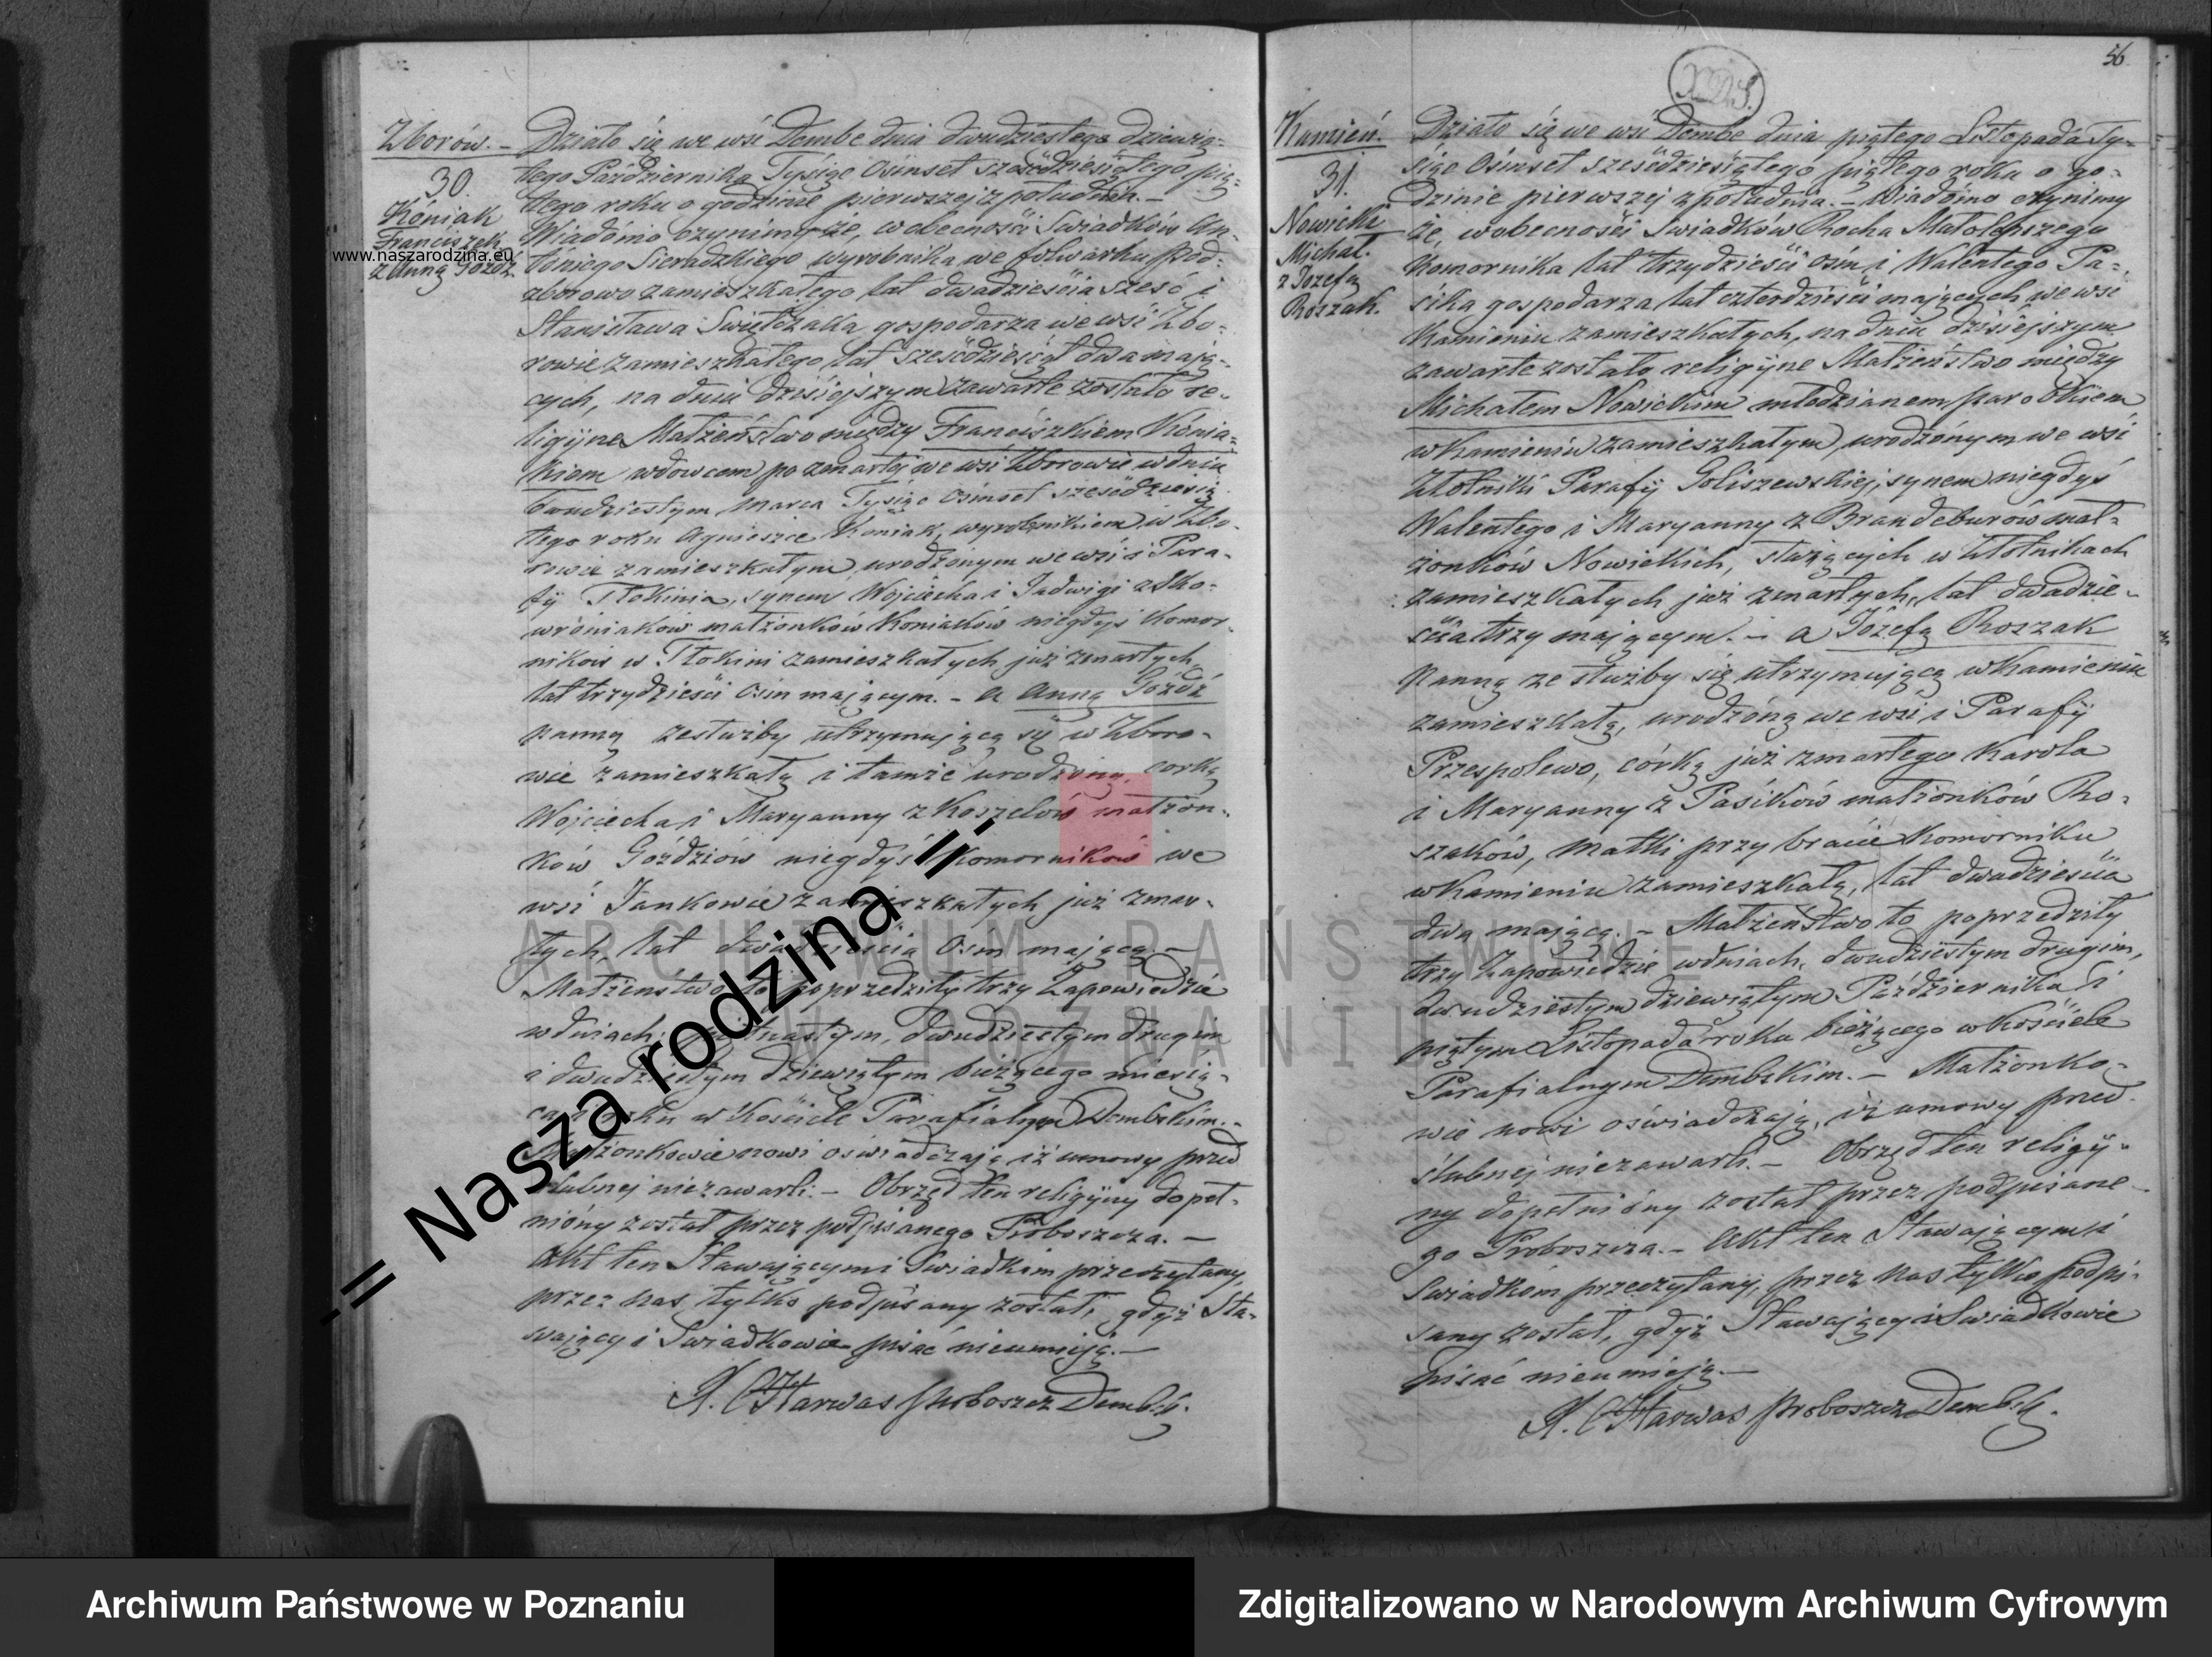 Zborów. –
30.
Koniak
Franciszek
z Anną Gozdź.
www.naszarodzina.eu
Działo się we wsi Dembe dnia dwudziestego dziewią-
tego Października Tysiąc Osimset sześćdziesiątego pią-
tego roku o godzinie pierwszej z południa. –
Wiadomo czynimy że, w obecności Swiadków An-
toniego Sieradzkiego wyrobnika we folwarku Pod-
zborowo zamieszkałego lat dwadzieścia sześć i
Stanisława Swiętczaka gospodarza we wsi Zbo-
rowie zamieszkałego lat sześćdziesiąt dwa mają-
cych, na dniu dzisiejszym zawarte zostało re-
ligijne Małżeństwo między Franciszkiem Konia-
kiem wdowcem po zmarłej we wsi Zborowie w dniu
dwudziestym Marca Tysiąc Osimset sześćdziesią
tego roku Agnieszce Koniak, wyrobnikiem w Zbo-
rowie zamieszkałym, urodzonym we wsi i Para-
fij Tłokinia, synem Wojciecha i Jadwigi z Sko-
wroniaków małżonków Koniaków niegdyś Komor-
ników w Tłokini zamieszkałych już zmarłych,
lat trzydzieści osim mającym. – a Anną Gozdź
panną ze służby utrzymującą się w Zboro-
wie zamieszkałą i tamże urodzoną, corką
Wojciecha i Maryanny z Koszelów małżon-
ków Goździów niegdyś Komorników we
wsi Jankowie zamieszkałych już zmar-
tych, lat dwadzieścia Osm mającą. –
Małżeństwo to poprzedziły trzy Zapowiedzie
w dniach, piętnastym, dwudziestym drugim
i dwudziestym dziewiątym bieżącego miesią-
ca i roku w Kościele Parafialnym Dembskim. –
Małżonkowie nowi oświadczają iż umowy przed
ślubnej niezawarli. – Obrzęd ten religijny dopeł-
niony został przez podpisanego Proboszcza. –
Akt ten Stawającymi Swiadkim przeczytany,
przez nas tylko podpisany został, gdyż Sta-
wający i Swiadkowie pisać nieumieją. –
X. C Harwas Proboszcz Dembski.
56.
Kamień.
31.
Nowicki
Michał.
z Jozefą
Roszak.
Działo się we wsi Dembe dnia piątego Listopada Ty-
siąc Osimset sześćdziesiątego piątego roku o go-
dzinie pierwszej z południa. – Wiadomo czynimy
że, w obecności Swiadków Rocha Małolepszego
Komornika lat trzydzieści osim i Walentego Pa-
sika gospodarza lat czterdzieści mających we wsi
Kamieniu zamieszkałych, na dniu dzisiejszym
zawarte zostało religijne Małżeństwo między
Michałem Nowickim młodzianem parobkiem
w Kamieniu zamieszkałym, urodzonym we wsi
Złotniki Parafij Goliszewskiej, synem niegdyś
Walentego i Maryanny z Brandeburów mał-
żonków Nowickich, służących w Złotnikach
zamieszkałych już zmarłych, lat dwadzie-
ścia trzy mającym. – a Józefą Roszak
Panną ze służby się utrzymującą w Kamieniu
zamieszkałą, urodzoną we wsi i Parafij
Przespolewo, córką już zmarłego Karola
i Maryanny z Pasików małżonków Ro-
szaków, matki przy bracie Komorniku
w Kamieniu zamieszkałą, lat dwadzieścia
dwa mającą. – Małżeństwo to poprzedziły
trzy Zapowiedzie w dniach, dwudziestym drugim,
dwudziestym dziewiątym Października i
piątym Listopada roku bieżącego w Kościele
Parafialnym Dembskim. – Małżonko-
wie nowi oświadczają, iż umowy przed-
ślubnej niezawarli. – Obrzęd ten religij-
ny dopełniony został przez podpisane-
go Proboszcza. – Akt ten Stawającym i
Swiadkom przeczytany, przez nas tylko podpi-
sany został, gdyż Stawający i Swiadkowie
pisać nieumieją. –
X. C Harwas Proboszcz Dembski.
ARCHIWUM PAŃSTWOWE
W POZNANIU
-= Nasza rodzina =-
Archiwum Państwowe w Poznaniu
Zdigitalizowano w Narodowym Archiwum Cyfrowym